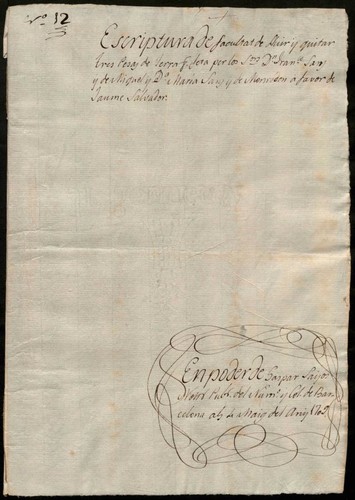 Nº. 12
Escriptura de facultat de lluir y quitar
tres Pesas de Terra feta per los Srs. Dn. Franco. Sans
y de Miquel y Da. Maria Sans y de Monrodon a favor de
Jaume Salvador.
En poder de Gaspar Sayós
Notri. Publ. del Numro. y Col. de Bar-
celona als 4 Maig del Any